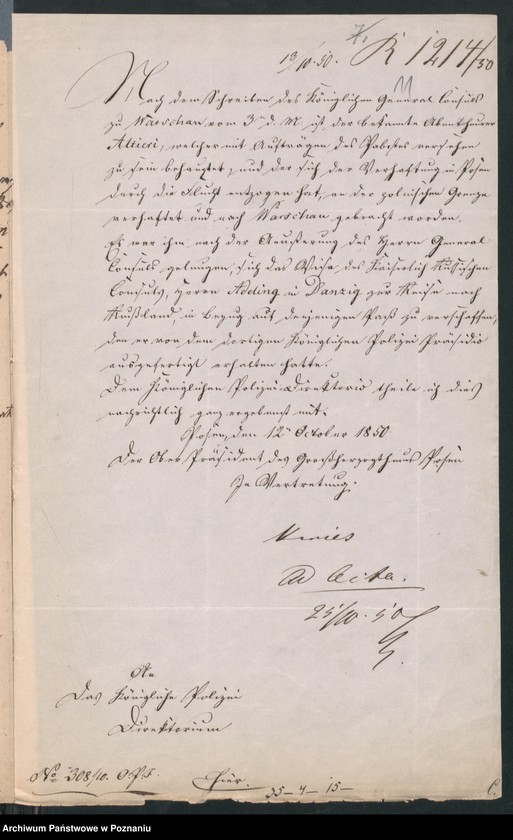 13/10.50.
R 1214/50
11
Nach dem Schreiben des Königlichen General Consuls
zu Warschau vom 3ten d. M. ist der bekannte Abentheurer
Altieri, welcher mit Aufträgen des Pabstes versehen
zu sein behauptet, und der sich der Verhaftung in Posen
durch die Flucht entzogen hat, an der polnischen Grenze
verhaftet und nach Warschau gebracht worden.
Es war ihm nach der Aeußerung des Herrn General
Consuls gelungen, sich das Visa des Kaiserlich Russischen
Consuls, Herrn Adeling in Danzig zur Reise nach
Rußland, in Bezug auf denjenigen Paß zu verschaffen,
den er von dem dortigen Königlichen Polizei Präsidio
ausgefertigt erhalten hatte.
Dem Königlichen Polizei-Direktorio theile ich dies
nachrichtlich ganz ergebenst mit.
Posen, den 12ten October 1850
Der Ober Präsident des Großherzogthums Posen
In Vertretung.
ad acta.
25/10.50
An
Das Königliche Polizei
Direktorium
No 308/10. O.P.
hier.
35-4-15-
Archiwum Państwowe w Poznaniu